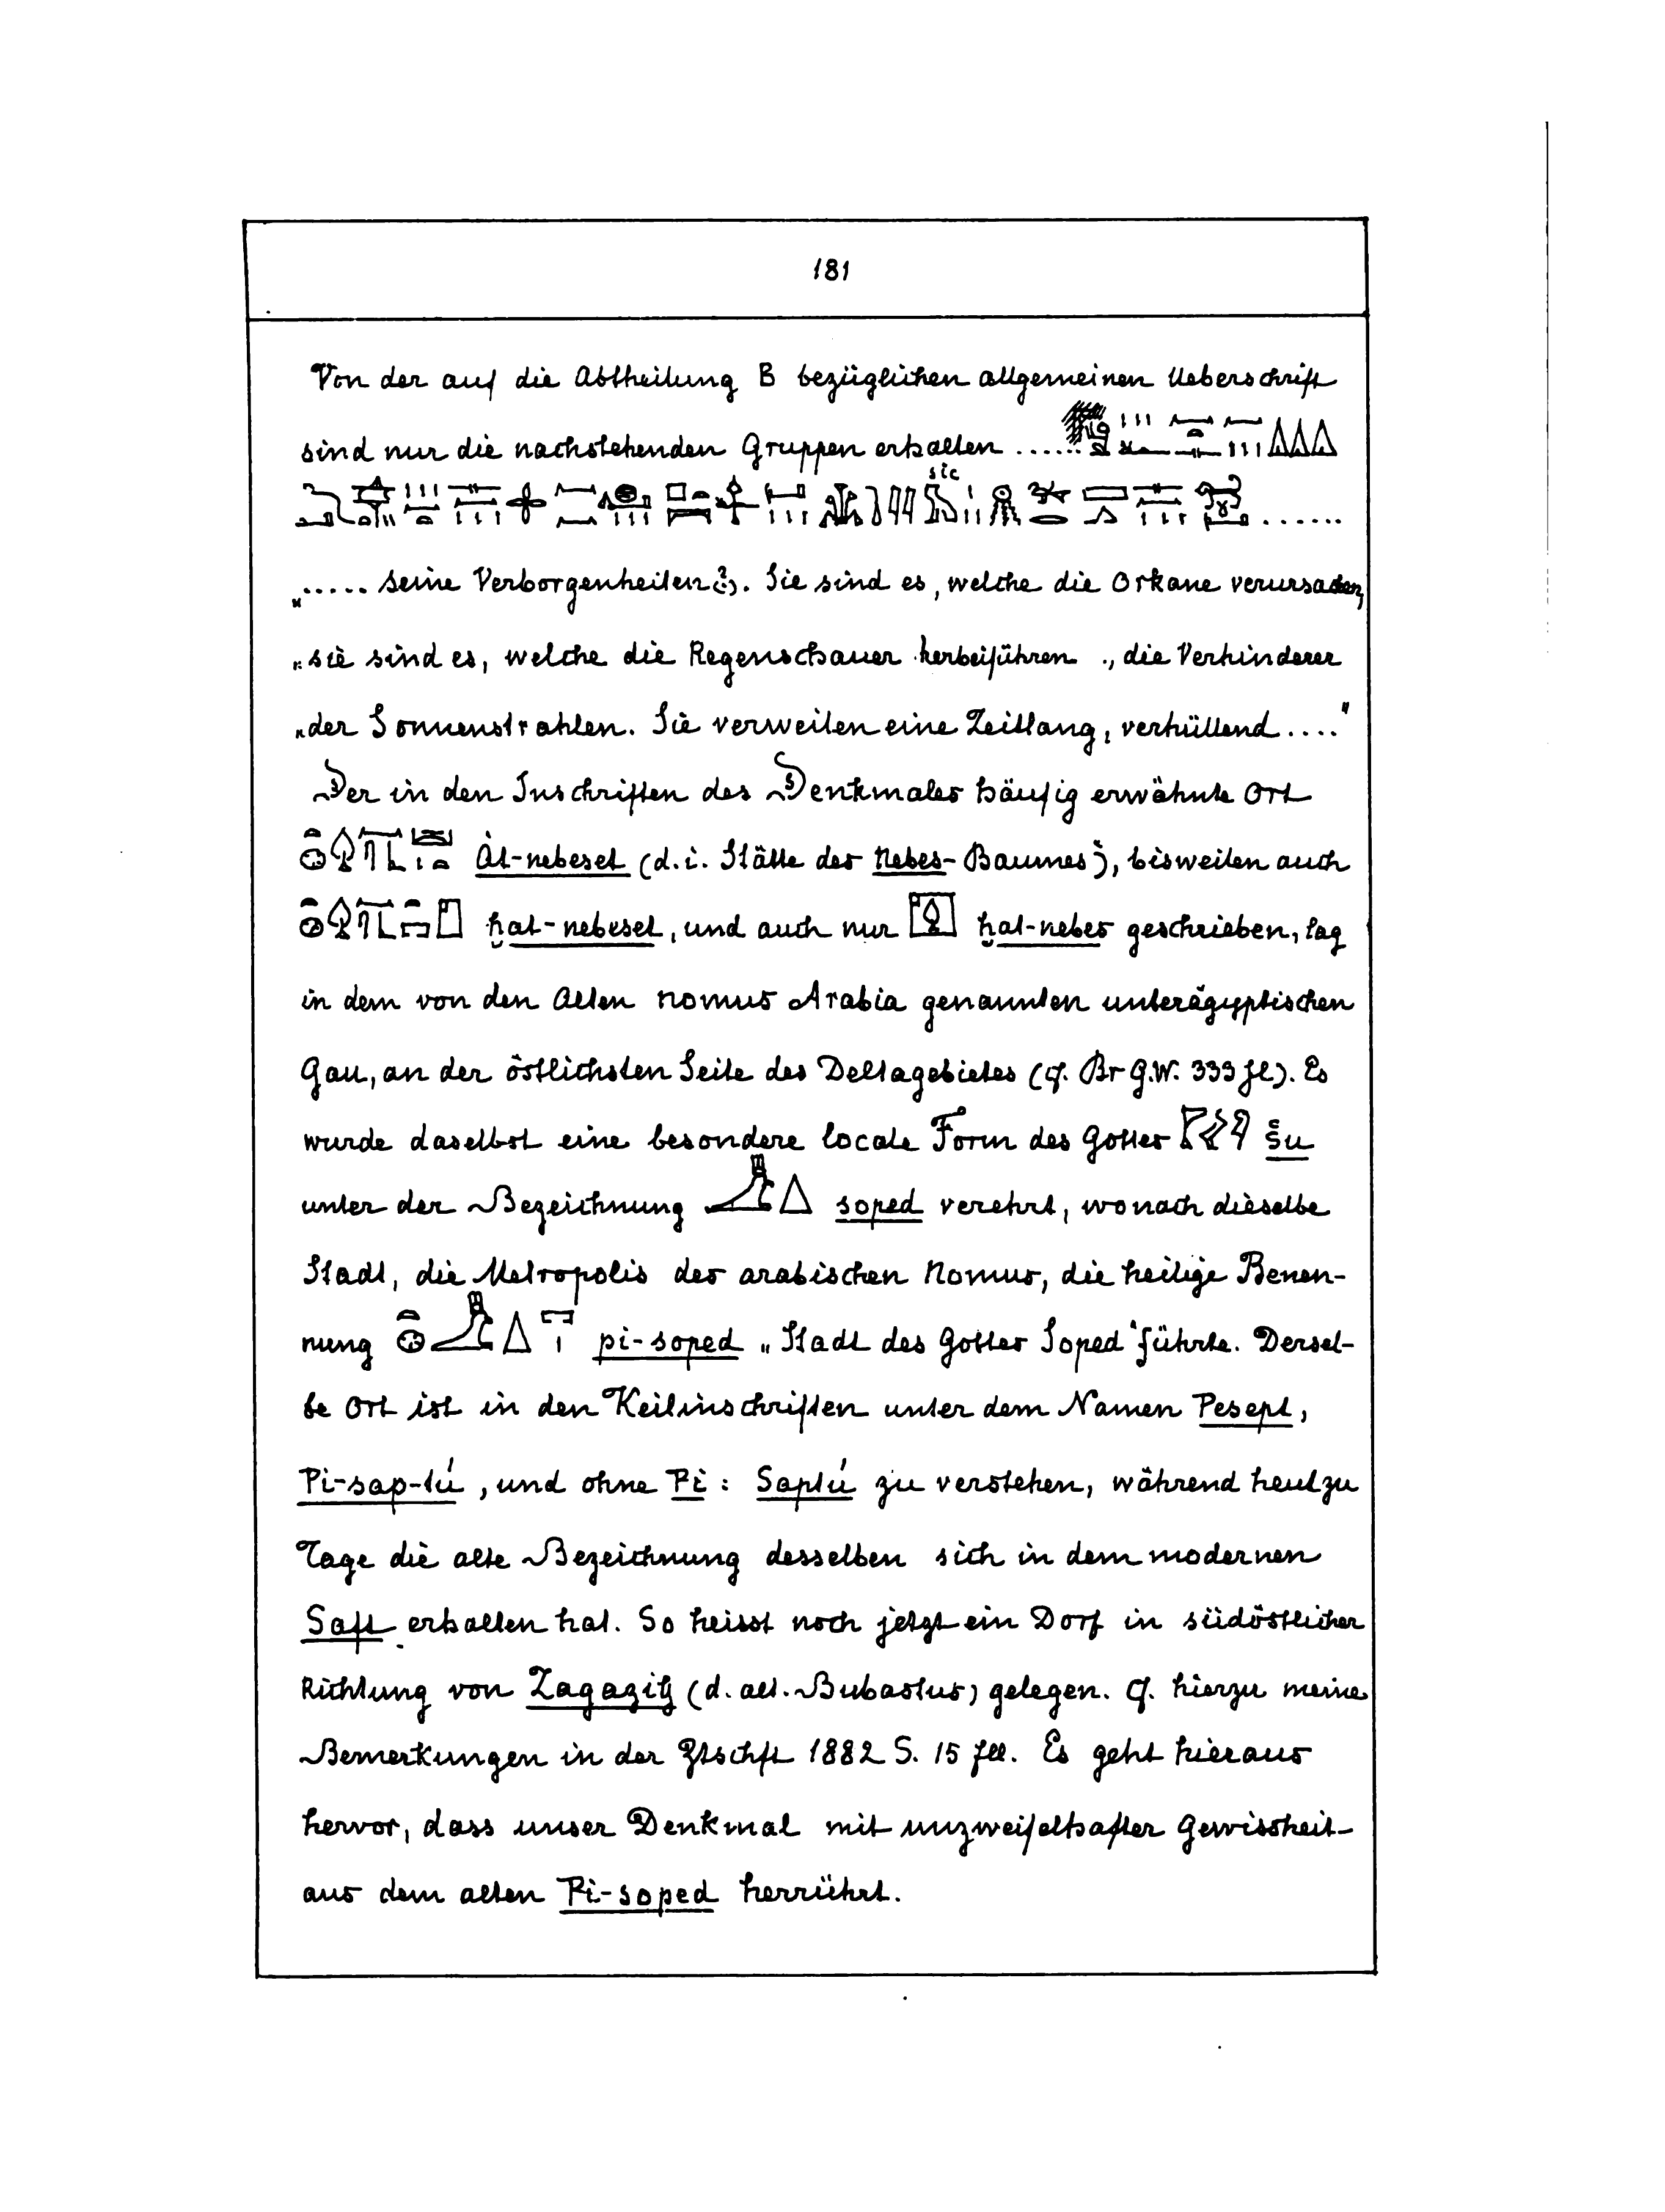 181
Von der auf die Abtheilung B bezüglichen allgemeinen Ueberschrift
sind nur die nachstehenden Gruppen erhalten ......
sic
......
„..... seine Verborgenheiten(?). Sie sind es, welche die Orkane verursachen,
„sie sind es, welche die Regenschauer herbeiführen, die Verhinderer
„der Sonnenstrahlen. Sie verweilen eine Zeitlang, verhüllend...."
Der in den Inschriften des Denkmales häufig erwähnte Ort
Àt-nebeset (d.i. Stätte des Nebes-Baumes), bisweilen auch
ḥat-nebeset, und auch nur ḥat-nebes geschrieben, lag
in dem von den Alten nomus Arabia genannten unterägyptischen
Gau, an der östlichsten Seite des Deltagebietes (cf. Br G.W. 333 fl). Es
wurde daselbst eine besondere locale Form des Gottes šu
unter der Bezeichnung soped verehrt, wonach dieselbe
Stadt, die Metropolis des arabischen Nomus, die heilige Benen-
nung pi-soped „Stadt des Gottes Soped" führte. Dersel-
be Ort ist in den Keilinschriften unter dem Namen Pesept,
Pi-sap-tú, und ohne Pi: Saptú zu verstehen, während heutzu
Tage die alte Bezeichnung desselben sich in dem modernen
Saft erhalten hat. So heisst noch jetzt ein Dorf in südöstlicher
Richtung von Zagazig (d. alt. Bubastus) gelegen. cf. hierzu meine
Bemerkungen in der Ztschft 1882 S. 15 fll. Es geht hieraus
hervor, dass unser Denkmal mit unzweifelhafter Gewissheit
aus dem alten Pi-soped herrührt.